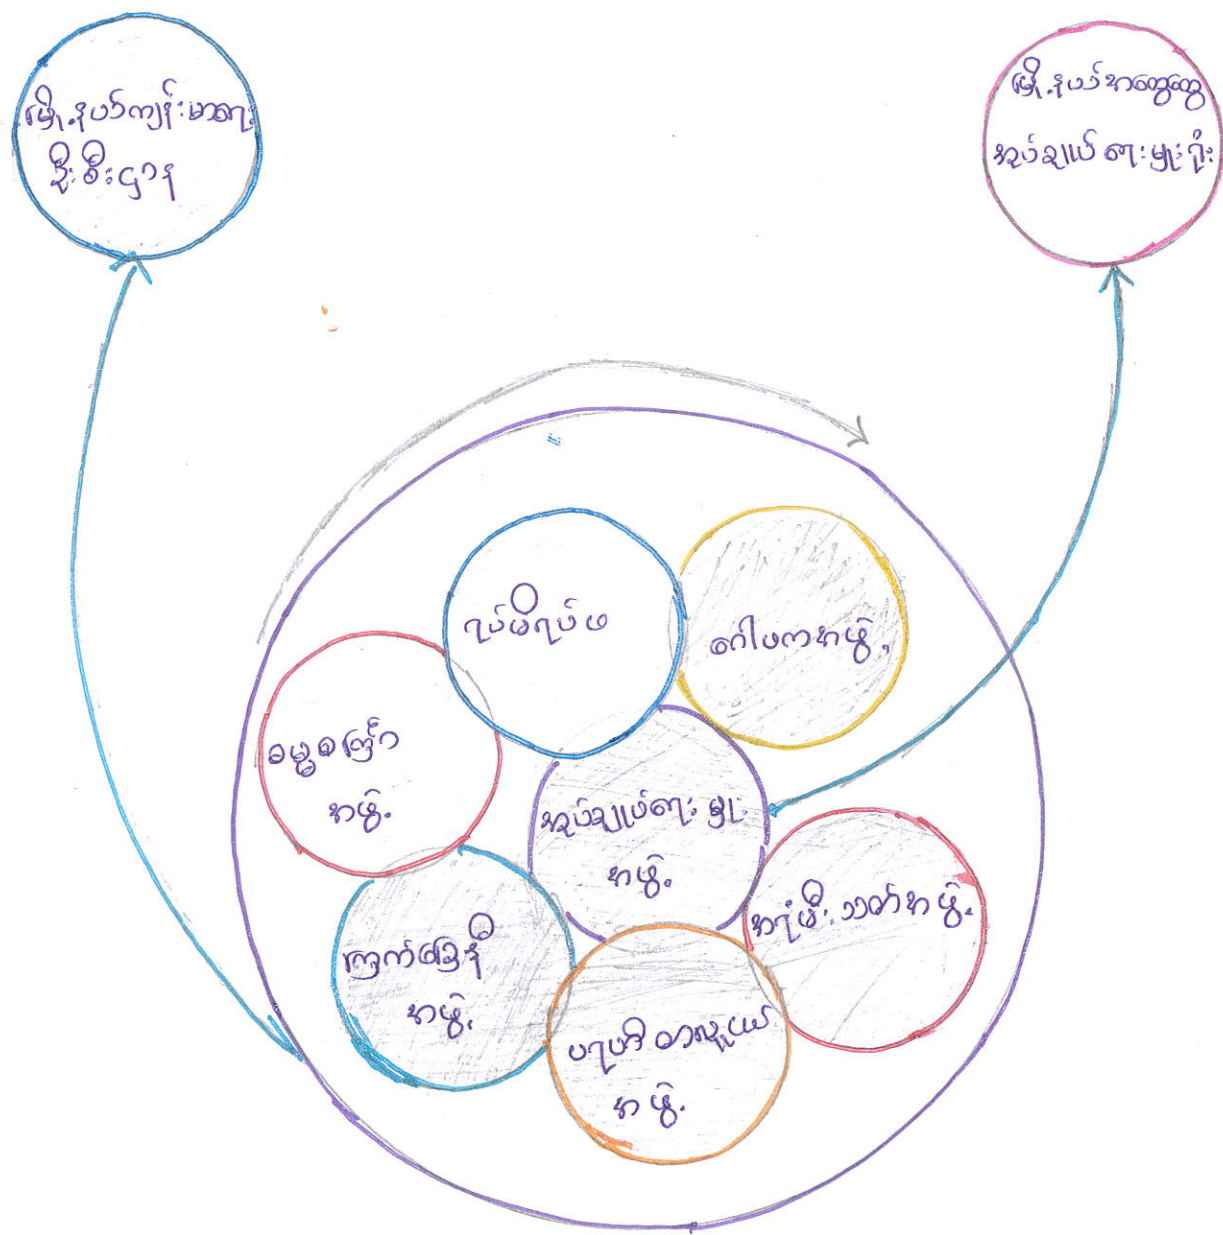 မြို့နယ်ကျန်းမာရေး
ဦးစီးဌာန
မြို့နယ်အထွေထွေ
အုပ်ချုပ်ရေးမှူးရုံး
ရပ်မိရပ်ဖ
ဂေါပကအဖွဲ့
ဓမ္မစကြာ
အဖွဲ့
အုပ်ချုပ်ရေးမှူး
အဖွဲ့
အရံမီးသတ်အဖွဲ့
ကြက်ခြေနီ
အဖွဲ့
ပရဟိတလူငယ်
အဖွဲ့